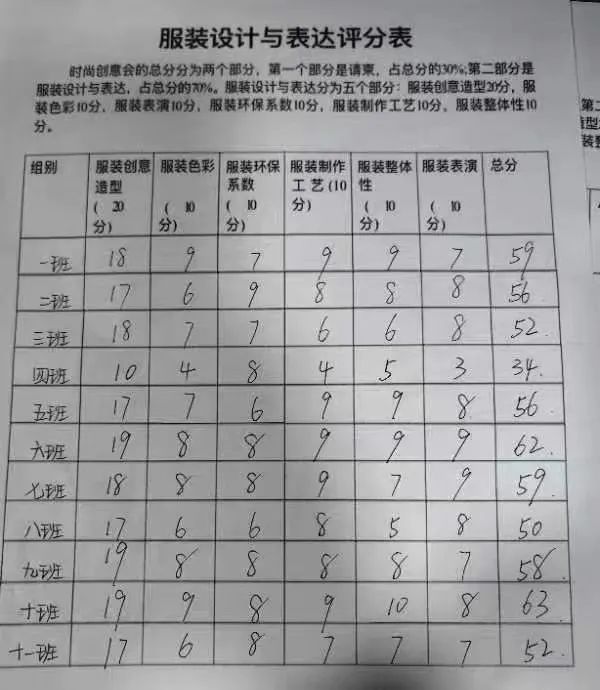 服装设计与表达评分表
时尚创意会的总分分为两个部分，第一个部分是请柬，占总分的30%;第二部分是
服装设计与表达，占总分的70%。服装设计与表达分为五个部分：服装创意造型20分，服
装色彩10分，服装表演10分，服装环保系数10分，服装制作工艺10分，服装整体性10
分。
组别 服装创意造型(20分) 服装色彩(10分) 服装环保系数(10分) 服装制作工艺(10分) 服装整体性(10分) 服装表演(10分) 总分
一班 18 9 7 9 9 7 59
二班 17 6 9 8 8 8 56.
三班 18 7 7 6 6 8 52.
四班 10 4 8 4 5 3 34.
五班 17 7 6 9 9 8 56
六班 19 8 8 9 9 9 62.
七班 18 8 8 9 7 9 59.
八班 17 6 6 8 5 8 50
九班 19 8 8 8 8 7 58.
十班 19 9 8 9 10 8 63.
十一班 17 6 8 7 7 7 52.
第二
造型
装整